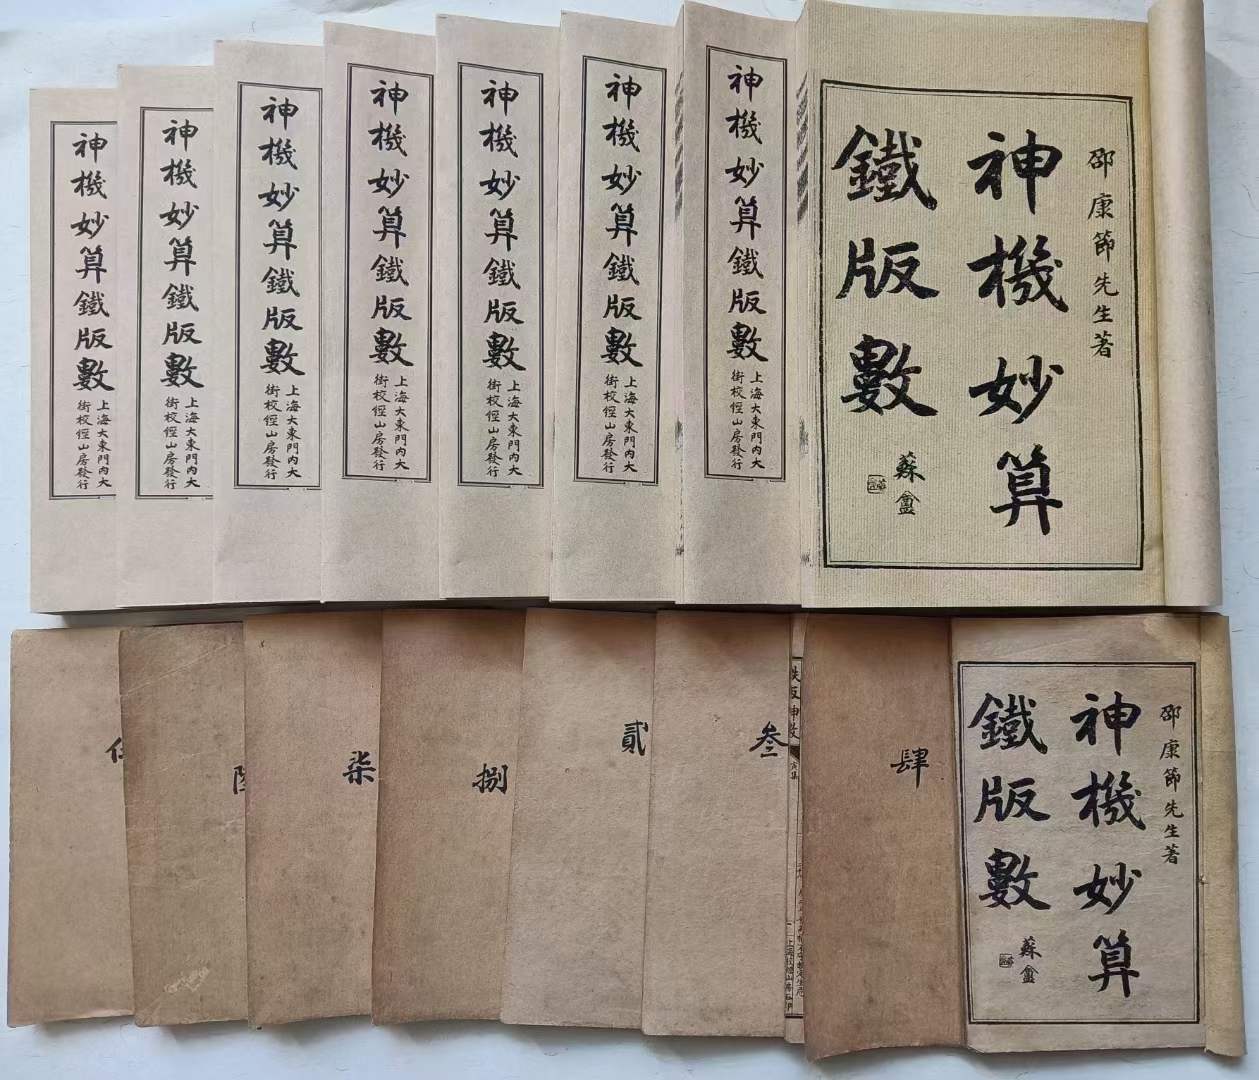 神機妙算鐵版數
上海大東門內大
街校經山房發行
神機妙算鐵版數
上海大東門內大
街校經山房發行
神機妙算鐵版數
上海大東門內大
街校經山房發行
神機妙算鐵版數
上海大東門內大
街校經山房發行
神機妙算鐵版數
上海大東門內大
街校經山房發行
神機妙算鐵版數
上海大東門內大
街校經山房發行
神機妙算鐵版數
上海大東門內大
街校經山房發行
邵康節先生著
神機妙算
鐵版數
蘇盦
伍
陸
柒
捌
貳
叁
鉄版神数
肆
邵康節先生著
神機妙算
鐵版數
蘇盦